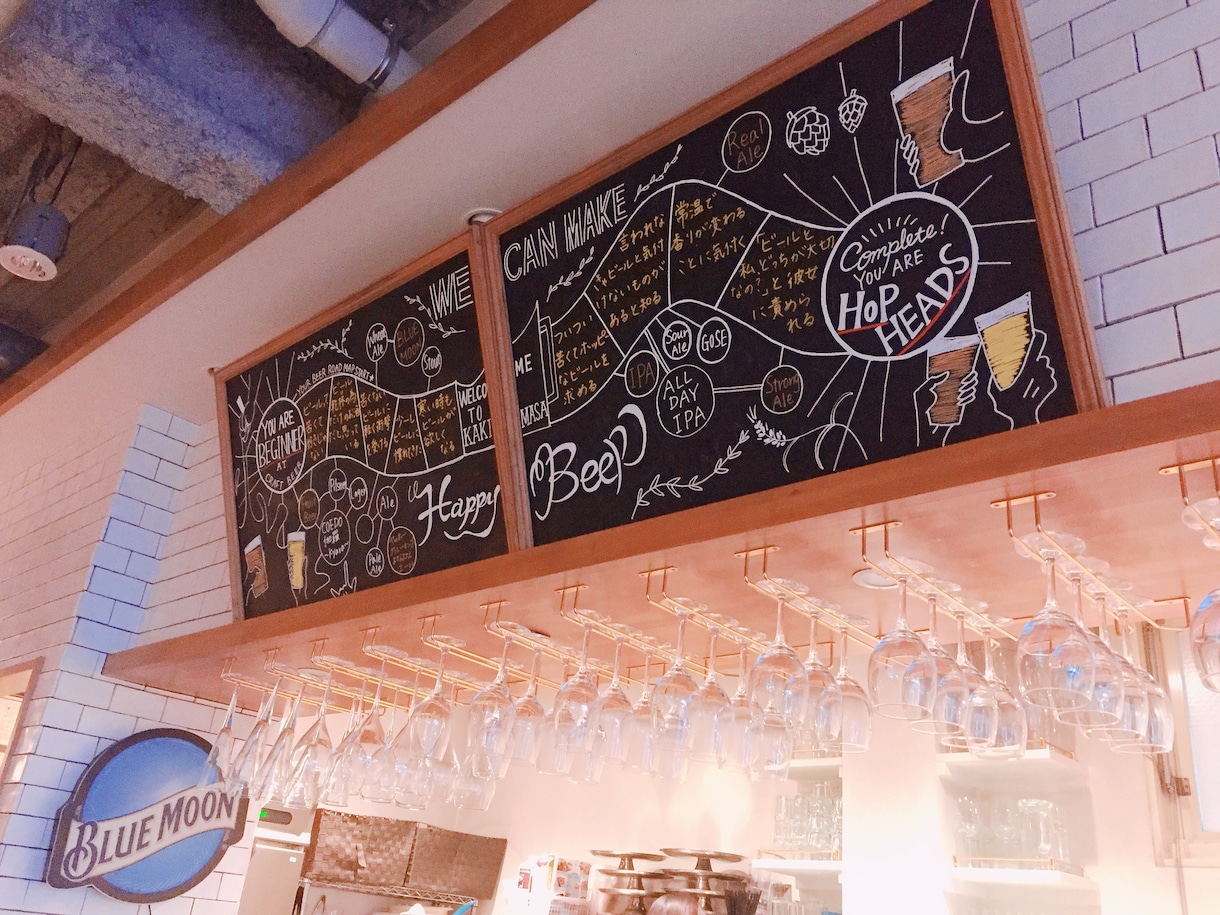 WE
CAN MAKE
YOUR BEER ROAD MAP START
YOU ARE
BEGINNER
AT
CRAFT BEER
ビールが
欲しく
なる
WELCO
TO
KAKI
ME
MASA
Wheat
Ale
BLUE
MOON
Stout
Pilsner
Lager
Ale
COEDO
Pale
Ale
Happy
Beer
ついつい
苦くてホッピー
なビールを
求める
言われな
きゃビールと気付
けないものが
あると知る
常温で
香りが変わる
ことに気付く
「ビールと
私、どっちが大切
なの?」と彼女
に責めら
れる
Real
Ale
IPA
Sour
Ale
GOSE
ALL
DAY
IPA
Strong
Ale
Complete!
YOU ARE
HOP
HEADS
BLUE MOON